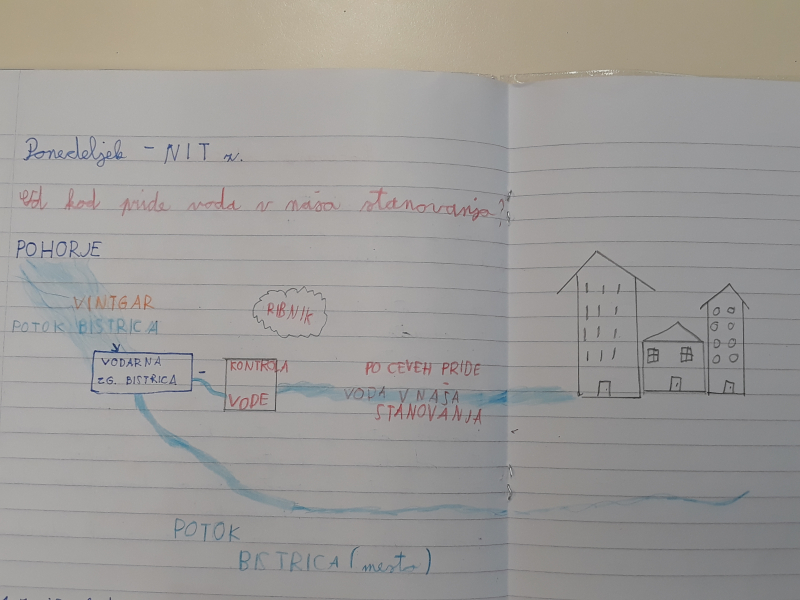 Ponedeljek - NIT
Od kod pride voda v naša stanovanja?
POHORJE
VINTGAR
POTOK BISTRICA
RIBNIK
VODARNA
ZG. BISTRICA
KONTROLA
VODE
PO CEVEH PRIDE
VODA V NAŠA
STANOVANJA
POTOK
BISTRICA (mesto)